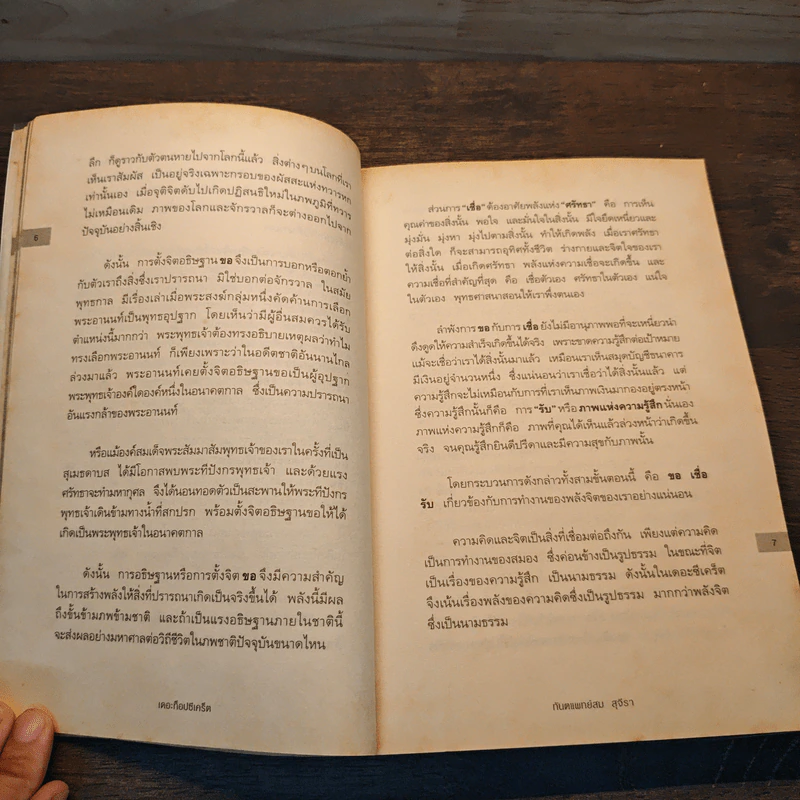 ลึก ก็ดูราวกับตัวตนหายไปจากโลกนี้แล้ว สิ่งต่างๆ บนโลกที่เรา
เห็นเราสัมผัส เป็นอยู่จริงเฉพาะกรอบของผัสสะแห่งทวารหก
เท่านั้นเอง เมื่อจุติจิตดับไปเกิดปฏิสนธิใหม่ในภพภูมิที่ทวาร
ไม่เหมือนเดิม ภาพของโลกและจักรวาลก็จะต่างออกไปจาก
ปัจจุบันอย่างสิ้นเชิง
6
ดังนั้น การตั้งจิตอธิษฐาน ขอ จึงเป็นการบอกหรือตอกย้ำ
กับตัวเราถึงสิ่งซึ่งเราปรารถนา มิใช่บอกต่อจักรวาล ในสมัย
พุทธกาล มีเรื่องเล่าเมื่อพระสงฆ์กลุ่มหนึ่งคัดค้านการเลือก
พระอานนท์เป็นพุทธอุปฐาก โดยเห็นว่ามีผู้อื่นสมควรได้รับ
ตำแหน่งนี้มากกว่า พระพุทธเจ้าต้องทรงอธิบายเหตุผลว่าทำไม
ทรงเลือกพระอานนท์ ก็เพียงเพราะว่าในอดีตชาติอันนานไกล
ล่วงมาแล้ว พระอานนท์เคยตั้งจิตอธิษฐานขอเป็นผู้อุปฐาก
พระพุทธเจ้าองค์ใดองค์หนึ่งในอนาคตกาล ซึ่งเป็นความปรารถนา
อันแรงกล้าของพระอานนท์
หรือแม้องค์สมเด็จพระสัมมาสัมพุทธเจ้าของเราในครั้งที่เป็น
สุเมธดาบส ได้มีโอกาสพบพระทีปังกรพุทธเจ้า และด้วยแรง
ศรัทธาจะทำมหากุศล จึงได้นอนทอดตัวเป็นสะพานให้พระทีปังกร
พุทธเจ้าเดินข้ามทางน้ำที่สกปรก พร้อมตั้งจิตอธิษฐานขอให้ได้
เกิดเป็นพระพุทธเจ้าในอนาคตกาล
ดังนั้น การอธิษฐานหรือการตั้งจิต ขอ จึงมีความสำคัญ
ในการสร้างพลังให้สิ่งที่ปรารถนาเกิดเป็นจริงขึ้นได้ พลังนี้มีผล
ถึงขั้นข้ามภพข้ามชาติ และถ้าเป็นแรงอธิษฐานภายในชาตินี้
จะส่งผลอย่างมหาศาลต่อวิถีชีวิตในภพชาติปัจจุบันขนาดไหน
เดอะท็อปซีเคร็ต
ส่วนการ "เชื่อ" ต้องอาศัยพลังแห่ง "ศรัทธา" คือ การเห็น
คุณค่าของสิ่งนั้น พอใจ และมั่นใจในสิ่งนั้น มีใจยึดเหนี่ยวและ
มุ่งมั่น มุ่งหา มุ่งไปตามสิ่งนั้น ทำให้เกิดพลัง เมื่อเราศรัทธา
ต่อสิ่งใด ก็จะสามารถอุทิศทั้งชีวิต ร่างกายและจิตใจของเรา
ให้สิ่งนั้น เมื่อเกิดศรัทธา พลังแห่งความเชื่อจะเกิดขึ้น และ
ความเชื่อที่สำคัญที่สุด คือ เชื่อตัวเอง ศรัทธาในตัวเอง แน่ใจ
ในตัวเอง พุทธศาสนาสอนให้เราพึ่งตนเอง
ลำพังการ ขอ กับการ เชื่อ ยังไม่มีอานุภาพพอที่จะเหนี่ยวนำ
ดึงดูดให้ความสำเร็จเกิดขึ้นได้จริง เพราะขาดความรู้สึกต่อเป้าหมาย
แม้จะเชื่อว่าเราได้สิ่งนั้นมาแล้ว เหมือนเราเห็นสมุดบัญชีธนาคาร
มีเงินอยู่จำนวนหนึ่ง ซึ่งแน่นอนว่าเราเชื่อว่าได้สิ่งนั้นแล้ว แต่
ความรู้สึกจะไม่เหมือนกับการที่เราเห็นภาพเงินมากองอยู่ตรงหน้า
ซึ่งความรู้สึกนั้นก็คือ การ "รับ" หรือ ภาพแห่งความรู้สึก นั่นเอง
ภาพแห่งความรู้สึกก็คือ ภาพที่คุณได้เห็นแล้วล่วงหน้าว่าเกิดขึ้น
จริง จนคุณรู้สึกยินดีปรีดาและมีความสุขกับภาพนั้น
โดยกระบวนการดังกล่าวทั้งสามขั้นตอนนี้ คือ ขอ เชื่อ
รับ เกี่ยวข้องกับการทำงานของพลังจิตของเราอย่างแน่นอน
ความคิดและจิตเป็นสิ่งที่เชื่อมต่อถึงกัน เพียงแต่ความคิด
เป็นการทำงานของสมอง ซึ่งค่อนข้างเป็นรูปธรรม ในขณะที่จิต
เป็นเรื่องของความรู้สึก เป็นนามธรรม ดังนั้นในเดอะซีเคร็ต
จึงเน้นเรื่องพลังของความคิดซึ่งเป็นรูปธรรม มากกว่าพลังจิต
ซึ่งเป็นนามธรรม
7
ทันตแพทย์สม สุจีรา